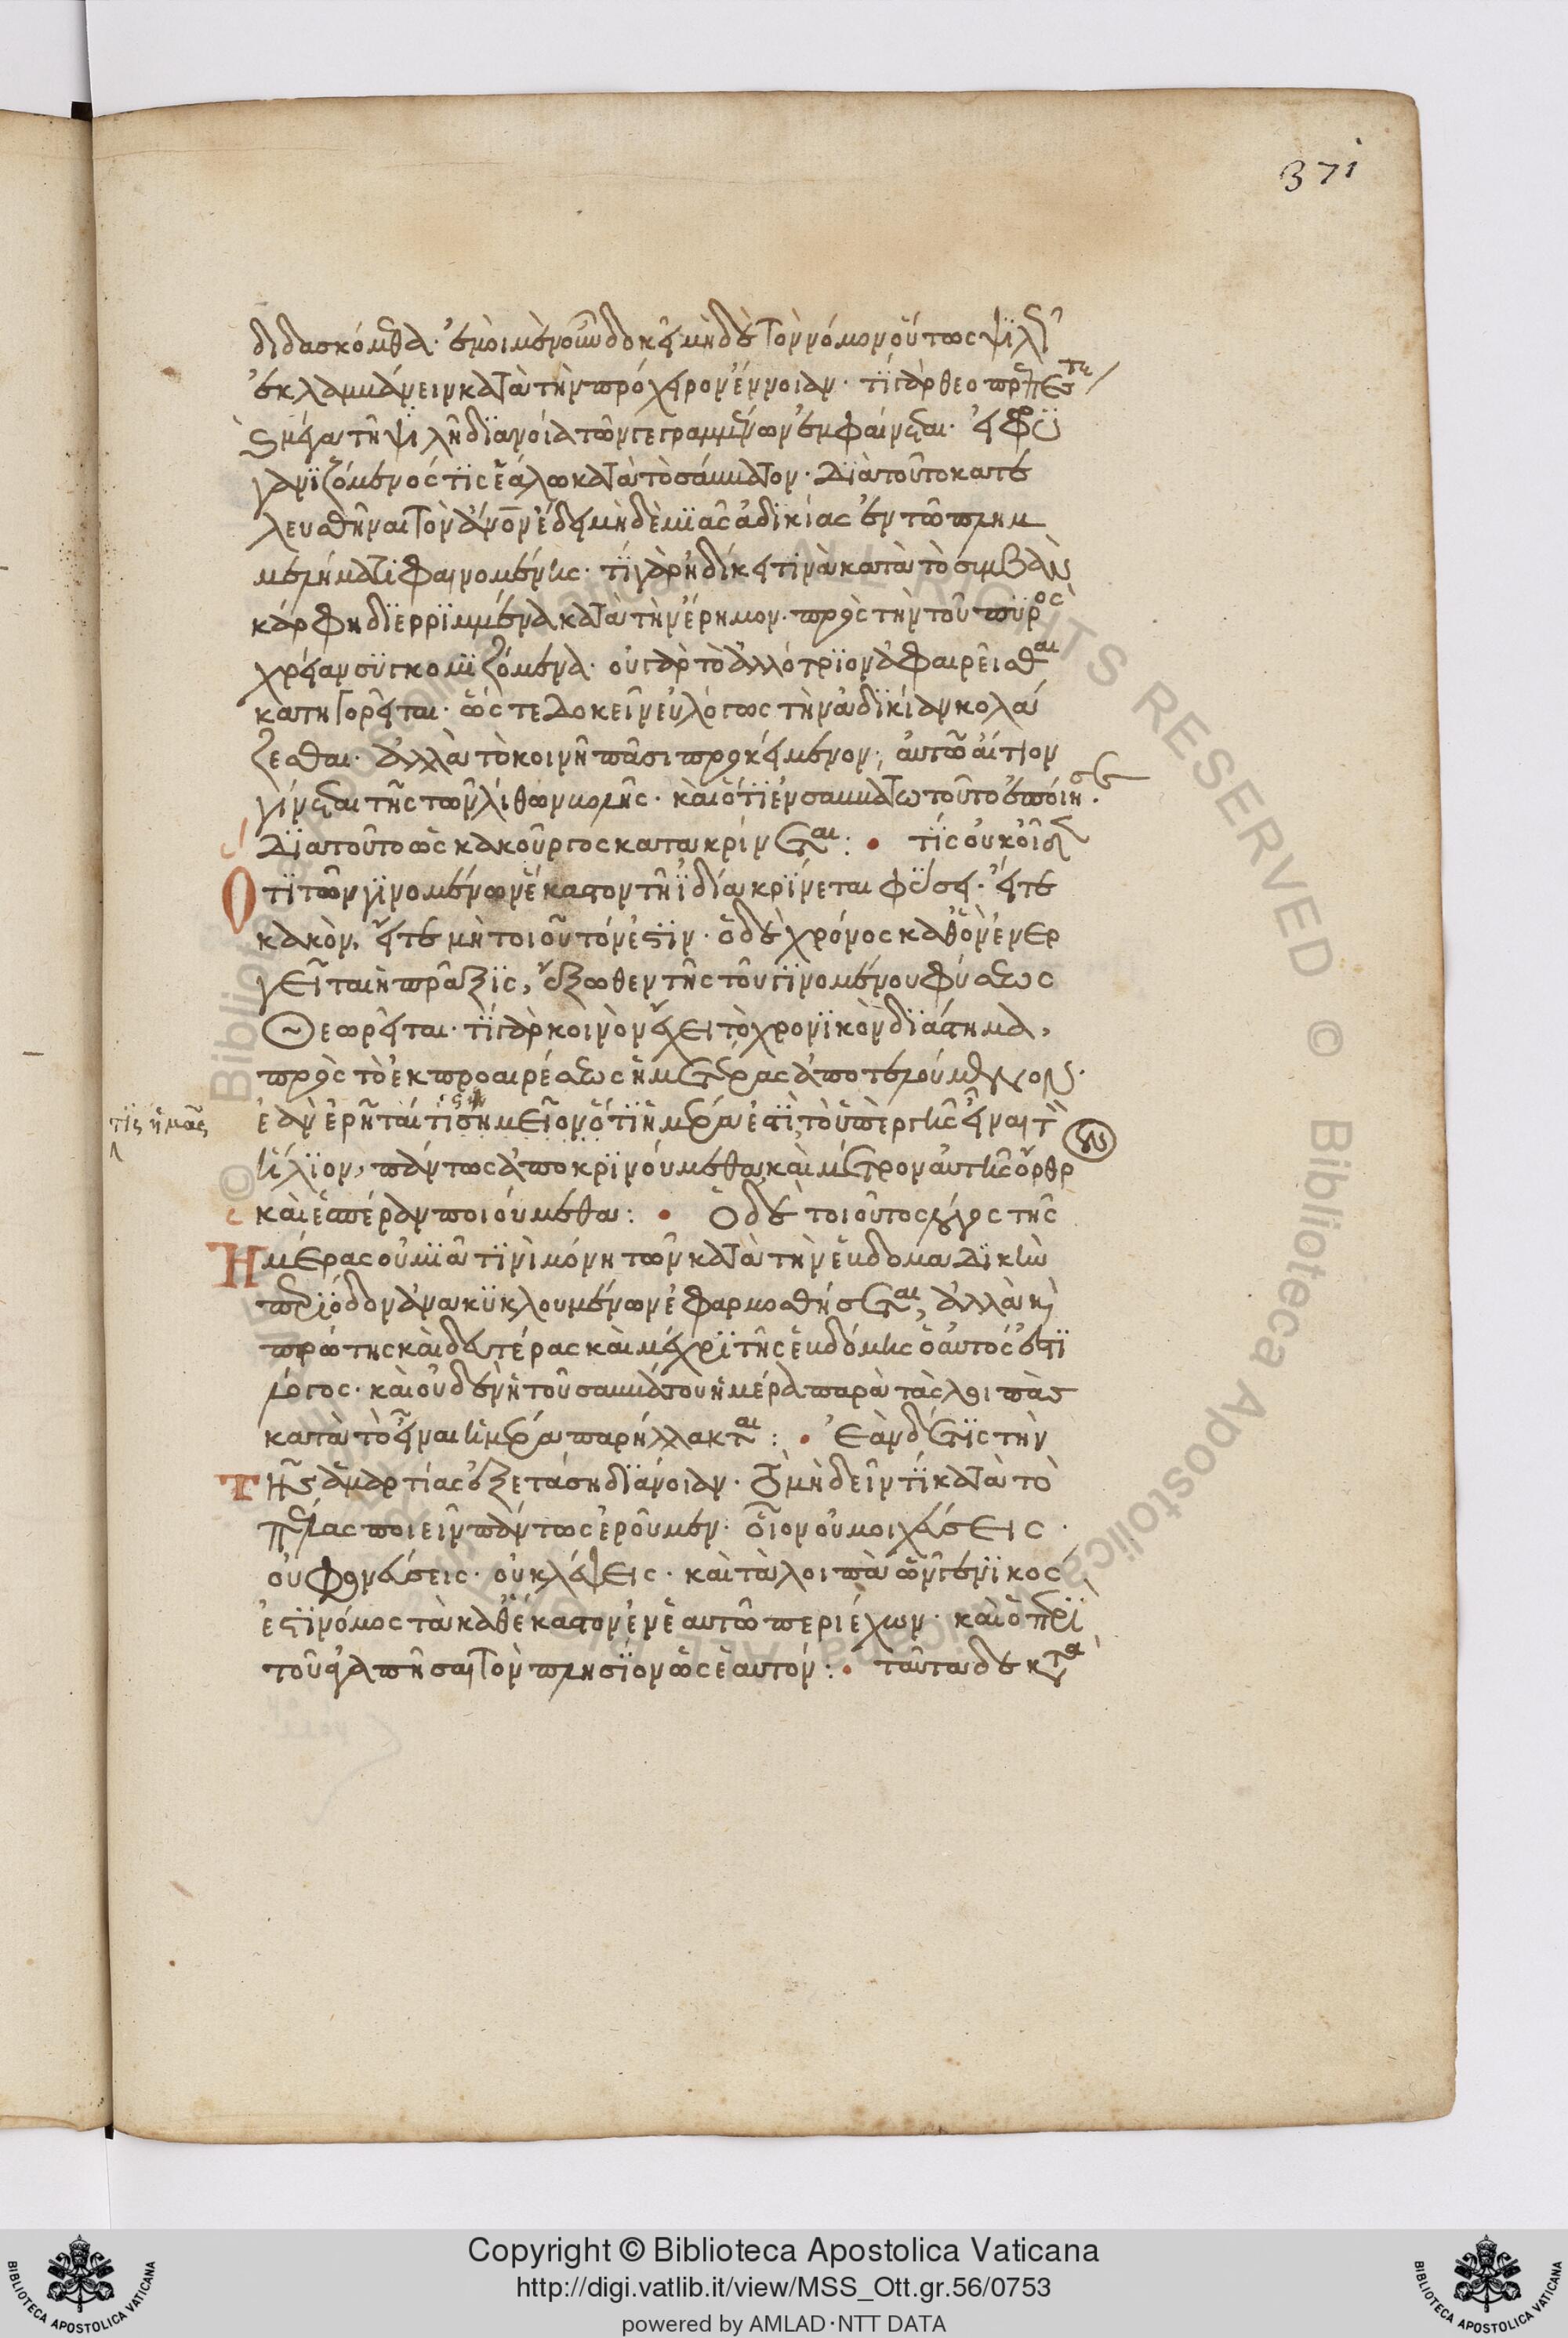 371
διδασκόμεθα· ἐμοὶ μὲν οὖν δοκεῖ μηδὲ τὸν νόμον οὕτως ψιλῶ
ἐκλαμβάνειν κατὰ τὴν πρόχειρον ἔννοιαν· τί γὰρ θεοπρεπὲς
ἐν τῇ ψιλῇ διανοίᾳ τῶν γεγραμμένων ἐμφαίνεται·
γανιζόμενός τις ἑάλω κατὰ τὸ σάββατον· διὰ τοῦτο κατε
λευσθῆναι τὸν ἄνον ἔδει μηδεμιᾶς ἀδικίας ἐν τῷ πλημ
μελήματι φαινομένης· τί γὰρ ἠδίκει τινὰ κατὰ τὸ συμβὰν
κάρφη διερριμμένα κατὰ τὴν ἔρημον πρὸς τὴν τοῦ πυρὸς
χρείαν συγκομιζόμενα· οὐ γὰρ τὸ ἀλλότριον ἀφαιρεῖσθαι
κατηγορεῖται· ὥστε δοκεῖν εὐλόγως τὴν ἀδικίαν κολά
ζεσθαι· ἀλλὰ τὸ κοινῇ πᾶσι προκείμενον, αὐτῶ αἴτιον
γίνεται τῆς τῶν λίθων βολῆς· καὶ ὅτι ἐν σαββάτω τοῦτο ἐποίησε·
διὰ τοῦτο ὡς κακοῦργος κατακρίνεται: • τίς οὐκ οἶδεν
Ὅτι τῶν γινομένων ἕκαστον τῇ ἰδίᾳ κρίνεται φύσει· εἴτε
κακὸν, εἴτε μὴ τοιοῦτόν ἐστιν· ὁ δὲ χρόνος καθ' ὃν ἐνερ
γεῖται ἡ πρᾶξις, ἔξωθεν τῆς τοῦ γινομένου φύσεως
Θεωρεῖται· τί γὰρ κοινὸν ἔχει τὸ χρονικὸν διάστημα,
πρὸς τὸ ἐκ προαιρέσεως ἡμετέρας ἀποτελούμενον·
τίς ἡμᾶς
ἐὰν ἔρηται τί ση μεῖον ὅτι ἡμέρα ἐστὶ τὸ ὑπὲρ γῆς εἶναι τὸν
ἥλιον, πάντως ἀποκρινούμεθα, καὶ μέτρον αὐτῆς ὄρθρον
καὶ ἑσπέραν ποιούμεθα: • Ὁ δὲ τοιοῦτος λόγος τῆς
Ἡμέρας οὐ μιᾷ τινὶ μόνῃ τῶν κατὰ τὴν ἑβδοματικὴν
περίοδον ἀνακυκλουμένων ἐφαρμοσθήσεται, ἀλλὰ καὶ
πρώτης καὶ δευτέρας καὶ μέχρι τῆς ἑβδόμης ὁ αὐτός ἐστι
λόγος· καὶ οὐδὲν ἡ τοῦ σαββάτου ἡμέρα παρὰ τὰς λοιπὰς
κατὰ τὸ εἶναι ἡμέρα παρήλλακται: • Ἐὰν δέ τις τὴν
τῆς ἁμαρτίας ἐξετάσῃ διάνοιαν· τὸ μὴ δεῖν τι κατὰ τὸ
πλησίας ποιεῖν πάντως ἐροῦμεν· οἷον οὐ μοιχεύσεις·
οὐ φονεύσεις· οὐ κλέψεις· καὶ τὰ λοιπὰ ὧν γενικός
ἐστι νόμος τὰ καθ' ἕκαστον ἐν ἑαυτῷ περιέχων· καὶ ὁ περὶ
τοῦ ἀγαπῆσαι τὸν πλησίον ὡς ἑαυτόν: • ταῦτα δὲ κἂν
Copyright © Biblioteca Apostolica Vaticana
http://digi.vatlib.it/view/MSS_Ott.gr.56/0753
powered by AMLAD·NTT DATA
BIBLIOTECA APOSTOLICA VATICANA
BIBLIOTECA APOSTOLICA VATICANA